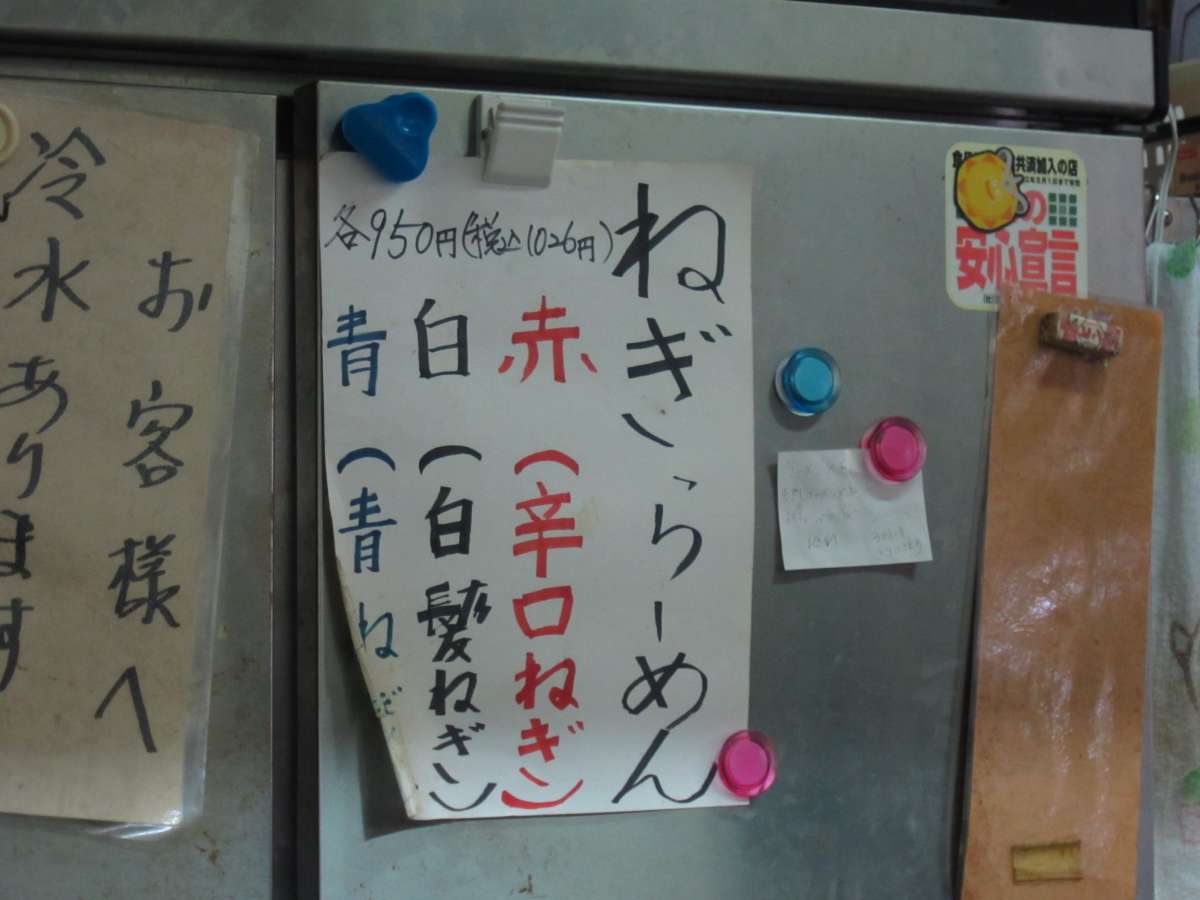 お客様へ
冷水あります
ねぎらーめん
赤(辛口ねぎ)
白(白髪ねぎ)
青(青ねぎ
各950円(税込1026円)
共済加入の店
の
安心宣言